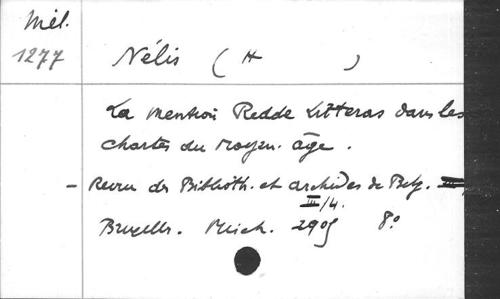 Mél.
1277
Nélis (H )
La mention Redde Litteras dans les
chartes du moyen-âge.
- Revue des Biblioth. et archives de Belg. III,
III/4.
Bruxelles. Misch. 1905 8°